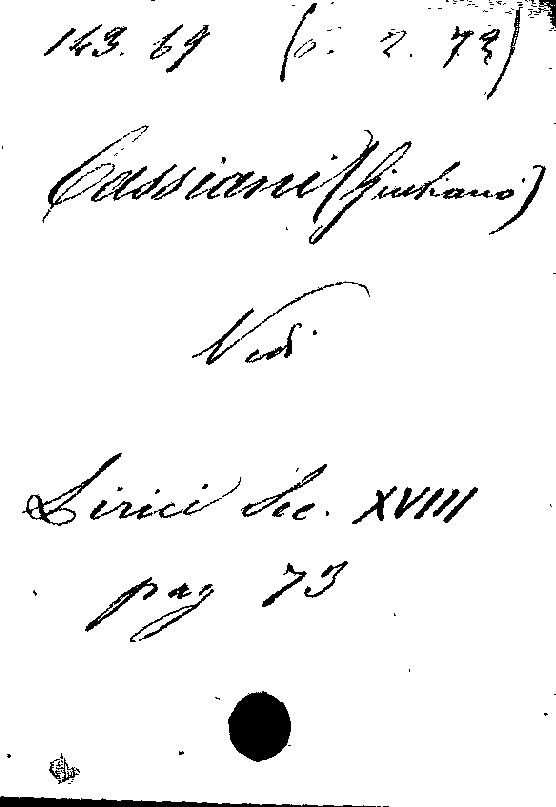 143. 69 (6. 2. 73)
Cassiani (Giuliano)
Vedi
Lirici Sec. XVIII
pag 73